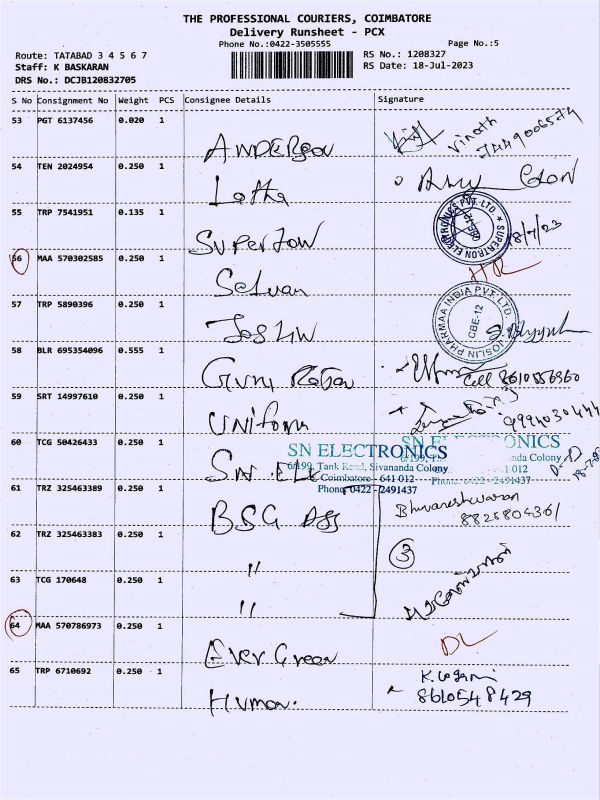 THE PROFESSIONAL COURIERS, COIMBATORE
Delivery Runsheet - PCX
Phone No.:0422-3505555 Page No.:5
Route: TATABAD 3 4 5 6 7 RS No.: 1208327
Staff: K BASKARAN RS Date: 18-Jul-2023
DRS No.: DCJB120832705
S No Consignment No Weight PCS Consignee Details Signature
53 PGT 6137456 0.020 1
ANDERSON Vinoth
54 TEN 2024954 0.250 1
Latha
55 TRP 7541951 0.135 1
SUPERTRON ELECTRONICS PVT. LTD. CBE-12
18/7/23
56 MAA 570302585 0.250 1
Selvan
57 TRP 5890396 0.250 1
JOSLIN JOSLIN PHARMAA INDIA PVT. LTD. CBE-12
58 BLR 695354096 0.555 1
Guru Cell 8610556960
59 SRT 14997610 0.250 1
UNIFORM
60 TCG 50426433 0.250 1
SN ELE
SN ELECTRONICS
6/199, Tank Road, Sivananda Colony
Coimbatore - 641 012
Phone: 0422 - 2491437
61 TRZ 325463389 0.250 1
BSG Bhuvaneshwaran
62 TRZ 325463383 0.250 1
" 3
63 TCG 170648 0.250 1
"
64 MAA 570786973 0.250 1
Ever Green DL
65 TRP 6710692 0.250 1
Human. K. Logani
8610548429